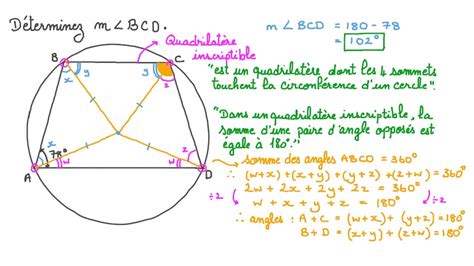 Déterminez m∠BCD.
Quadrilatère
inscriptible
B
C
x
y
y
z
x
78°
w
w
z
A
D
m∠BCD = 180 - 78
= 102°
"est un quadrilatère dont les 4 sommets
touchent la circonférence d'un cercle".
"Dans un quadrilatère inscriptible, la
somme d'une paire d'angle opposés est
égale à 180°."
somme des angles ABCD = 360°
∴ (w+x)+(x+y)+(y+z)+(z+w)=360°
2w + 2x + 2y + 2z = 360°
÷2
w + x + y + z = 180°
÷2
∴ angles : A + C = (w+x) + (y+z)=180°
B + D = (x+y) + (z+w)=180°